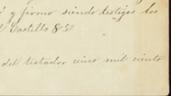 y firmo siendo testigos los
Castillo &
del testador cinco mil ciento